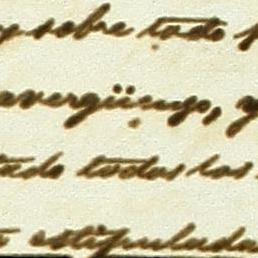 y sobre todo
avergüenzo, y
tado todos los
estipulada